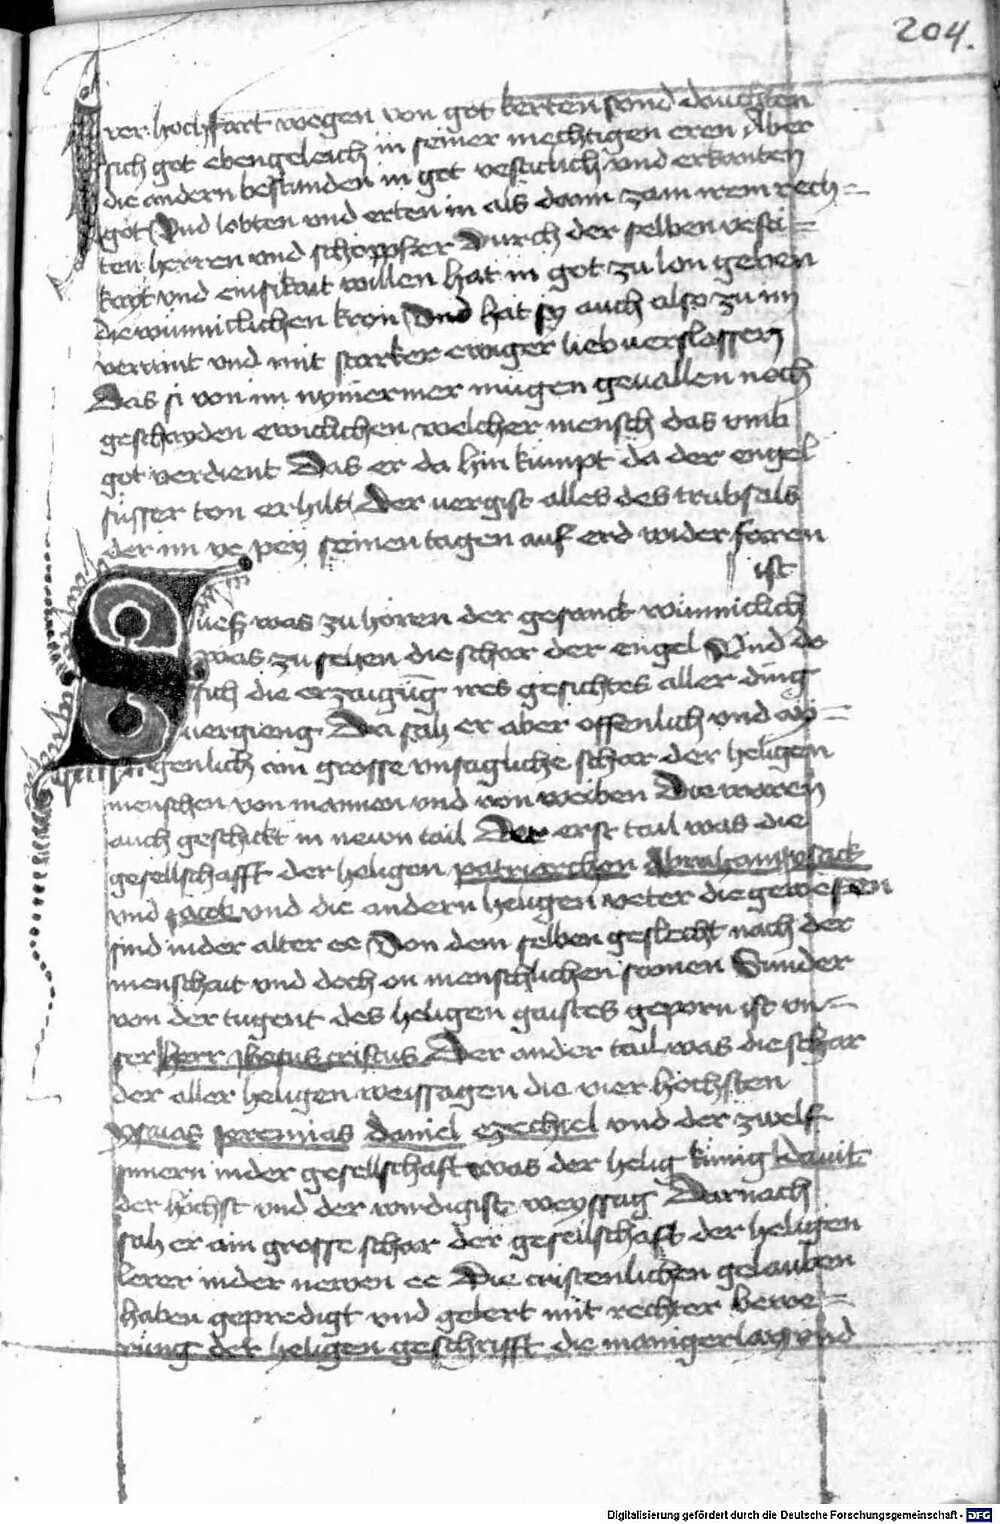 204.
irer hochfart wegen von got kerten sond dauchten
sich got ebengeleich in seiner mechtigen eren Aber
die andern bestunden in got vesticlich vnd erkanten
got Vnd lobten vnd erten in als dann zam irem rech=
ten herren vnd schöppfer Durch der selben vesti=
kayt vnd ainikait willen hat in got zu lon geben
die wunniclichen kron Vnd hat sy auch also zu im
veraint vnd mit starker ewiger lieb verslossen
Das si von im nymermer mügen geuallen noch
geschayden ewiclichen welcher mensch das vmb
got verdient Das er da hin kumpt da der engel
süsser ton erhilt Der vergist alles des trübsals
der im ye pey seinen tagen auf erd wider faren
ist
Sues was zu hören der gesanck wunniclich
was zu sehen die schar der engel Vnd do
sich die erzaigung ires gesichtes aller ding
vergieng Da sah er aber offenlich vnd ay=
genlich ain grosse vnsagliche schar der heligen
menschen von mannen vnd von weiben Die waren
auch geschickt in newn tail Der erst tail was die
gesellschafft der heligen patriarchen Abraham ysack
vnd jacob vnd die andern heligen veter die gewesen
sind in der alter ee Von dem selben geslecht nach der
menschait vnd doch on menschlichen somen Sunder
von der tugent des heligen gaistes geporn ist vn=
ser herr ihesus cristus Der ander tail was die schar
der aller heligen weissagen die vier höchsten
ysaias jeremias daniel ezechiel vnd der zwelf
mynnern in der gesellschaft was der helig künig dauit
der höchst vnd der wirdigist weyssag Darnach
sah er ain grosse schar der gesellschaft der heligen
lerer in der newen ee Die cristenlichen gelauben
haben gepredigt vnd gelert mit rechter bewe=
rung der heligen geschrifft die manigerlay vnd
Digitalisierung gefördert durch die Deutsche Forschungsgemeinschaft - DFG